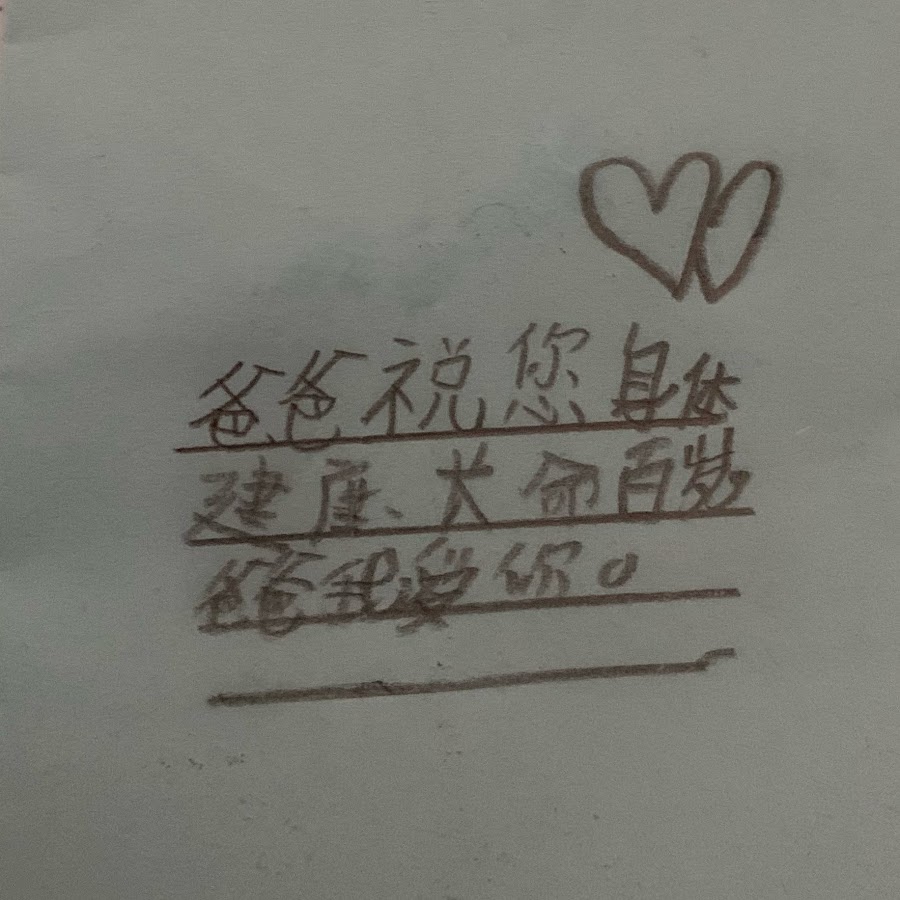 爸爸祝您身体
建康、大命百岁
爸爸我爱你。